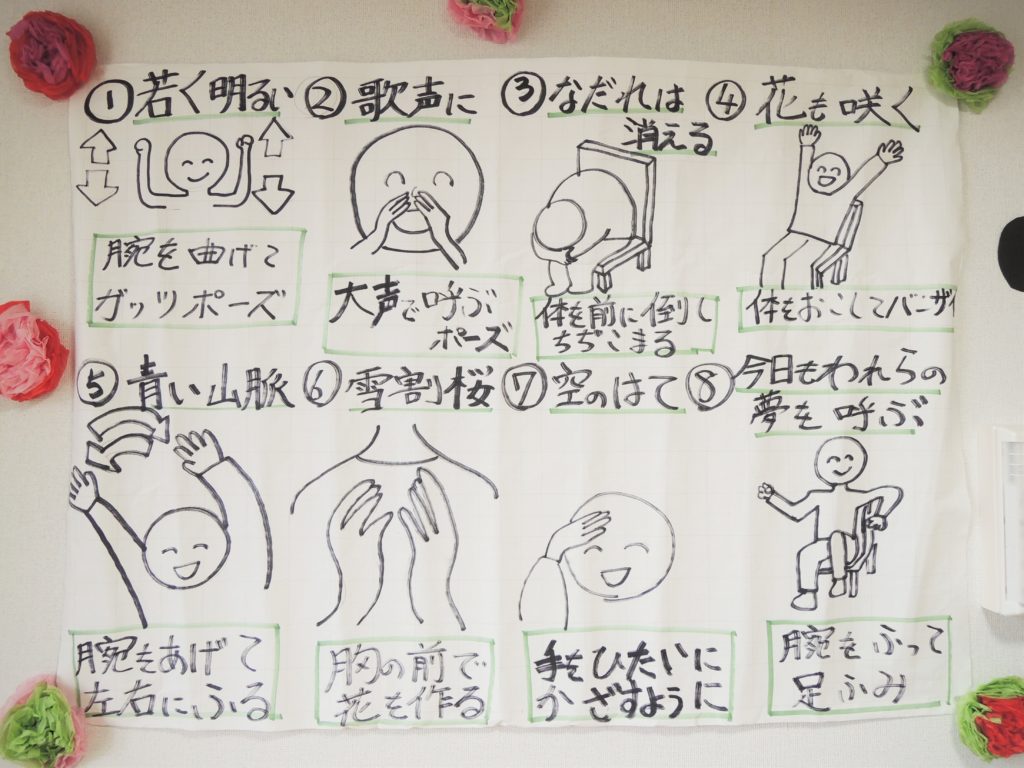 ① 若く明るい
腕を曲げて
ガッツポーズ
② 歌声に
大声で呼ぶ
ポーズ
③ なだれは
消える
体を前に倒し
ちぢこまる
④ 花も咲く
体をおこしてバンザイ
⑤ 青い山脈
腕をあげて
左右にふる
⑥ 雪割桜
胸の前で
花を作る
⑦ 空のはて
手をひたいに
かざすように
⑧ 今日もわれらの
夢を呼ぶ
腕をふって
足ふみ